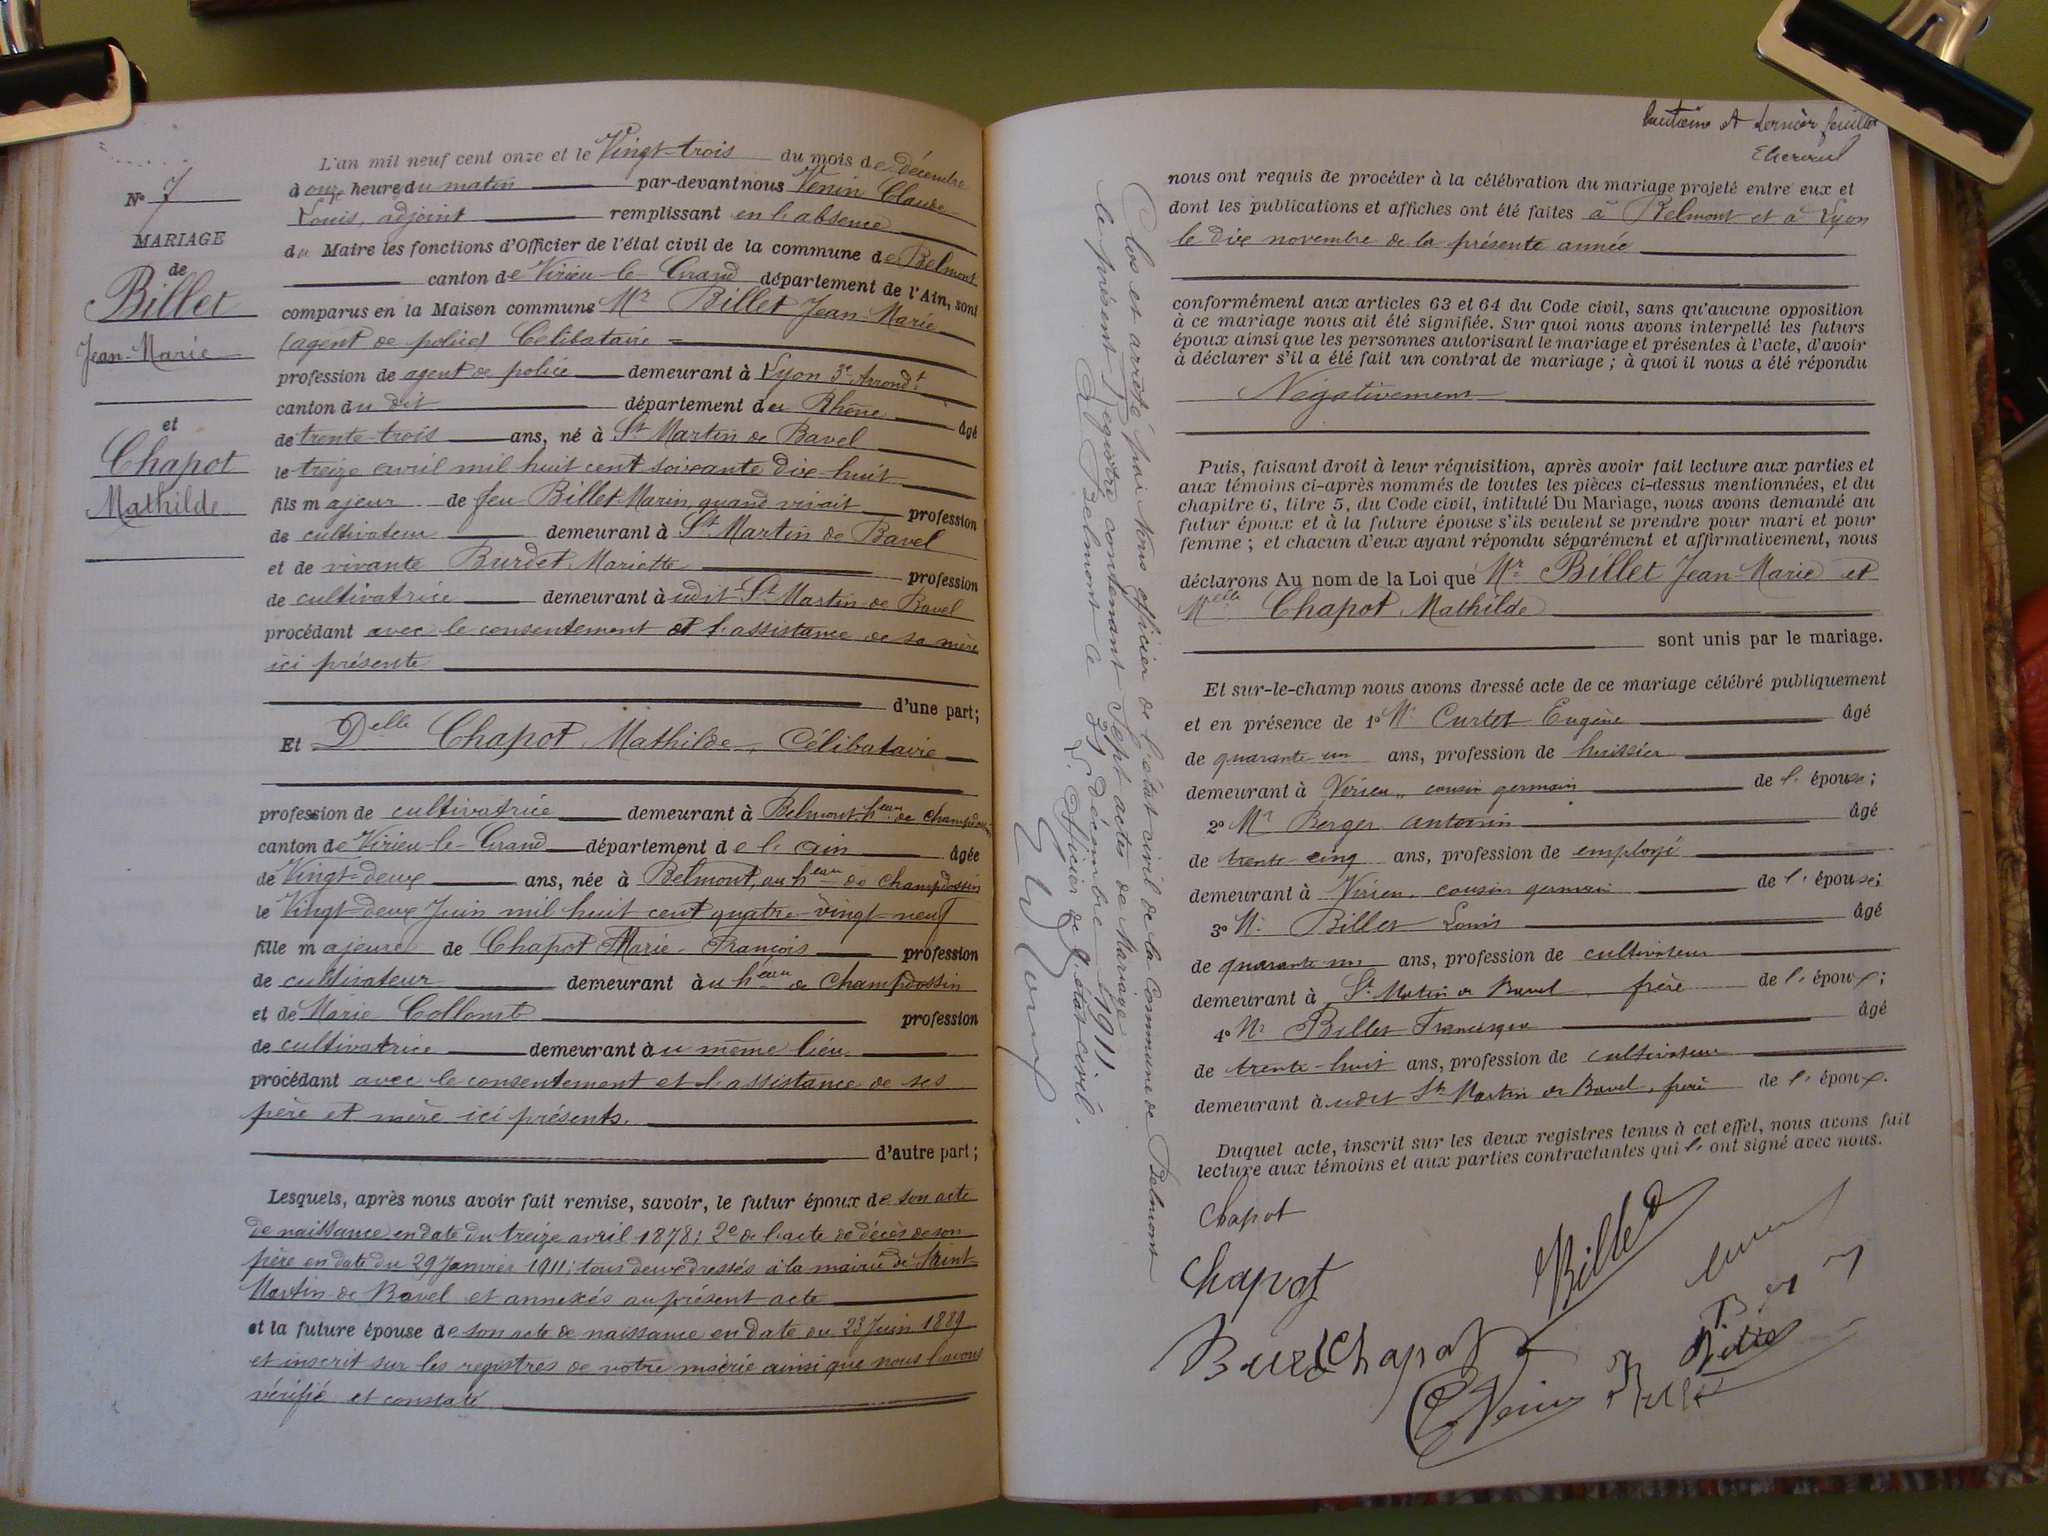 L'an mil neuf cent onze et le Vingt-trois du mois de décembre
N° 7
à onze heure du matin par-devant nous Venin Claude
Louis, adjoint remplissant en l'absence
MARIAGE
du Maire les fonctions d'Officier de l'état civil de la commune de Belmont
de
canton de Virieu-le-Grand département de l'Ain, sont
Billet
comparus en la Maison commune Mr Billet Jean-Marie
Jean-Marie
(agent de police) Célibataire
profession de agent de police demeurant à Lyon 3e Arrondt
canton du dit département du Rhône âgé
et
de trente-trois ans, né à St Martin de Bavel
Chapot
le treize avril mil huit cent soixante dix-huit
Mathilde
fils majeur de feu Billet Marin quand vivait profession
de cultivateur demeurant à St Martin de Bavel
et de vivante Burdet Mariette profession
de cultivatrice demeurant à udit St Martin de Bavel
procédant avec le consentement et l'assistance de sa mère
ici présente
d'une part;
Et Delle Chapot Mathilde, Célibataire
profession de cultivatrice demeurant à Belmont heau de Champdossin
canton de Virieu-le-Grand département de l'ain âgée
de Vingt-deux ans, née à Belmont, au heau de Champdossin
le Vingt-deux Juin mil huit cent quatre-vingt-neuf
fille majeure de Chapot Marie-François profession
de cultivateur demeurant au heau de Champdossin
et de Marie Collomb profession
de cultivatrice demeurant au même lieu
procédant avec le consentement et l'assistance de ses
père et mère ici présents.
d'autre part;
Lesquels, après nous avoir fait remise, savoir, le futur époux de son acte
de naissance en date du treize avril 1878; 2° de l'acte de décès de son
père en date du 29 Janvier 1911; tous deux dressés à la mairie de Saint-
Martin de Bavel et annexés au présent acte
et la future épouse de son acte de naissance en date du 23 Juin 1889
et inscrit sur les registres de notre mairie ainsi que nous l'avons
vérifié et constaté
Clos et arrêté par Nous officier de l'état civil de la Commune de Belmont
le présent Registre contenant Sept actes de Mariage
A Belmont le 31 Décembre 1911
L'Officier de l'état civil.
huitième et dernier feuillet
nous ont requis de procéder à la célébration du mariage projeté entre eux et
dont les publications et affiches ont été faites à Belmont et à Lyon
le dix novembre de la présente année
conformément aux articles 63 et 64 du Code civil, sans qu'aucune opposition
à ce mariage nous ait été signifiée. Sur quoi nous avons interpellé les futurs
époux ainsi que les personnes autorisant le mariage et présentes à l'acte, d'avoir
à déclarer s'il a été fait un contrat de mariage; à quoi il nous a été répondu
Négativement
Puis, faisant droit à leur réquisition, après avoir fait lecture aux parties et
aux témoins ci-après nommés de toutes les pièces ci-dessus mentionnées, et du
chapitre 6, titre 5, du Code civil, intitulé Du Mariage, nous avons demandé au
futur époux et à la future épouse s'ils veulent se prendre pour mari et pour
femme; et chacun d'eux ayant répondu séparément et affirmativement, nous
déclarons Au nom de la Loi que Mr Billet Jean-Marie et
Melle Chapot Mathilde
sont unis par le mariage.
Et sur-le-champ nous avons dressé acte de ce mariage célébré publiquement
et en présence de 1° Mr Curtet Eugène âgé
de quarante-un ans, profession de huissier
demeurant à Virieu, cousin germain de l'épouse;
2° Mr Berger Antonin âgé
de trente-cinq ans, profession de employé
demeurant à Virieu, cousin germain de l'épouse;
3° Mr Billet Louis âgé
de quarante un ans, profession de cultivateur
demeurant à St Martin de Bavel, frère de l'époux;
4° Mr Billet Francisque âgé
de trente-huit ans, profession de cultivateur
demeurant à udit St Martin de Bavel, frère de l'époux.
Duquel acte, inscrit sur les deux registres tenus à cet effet, nous avons fait
lecture aux témoins et aux parties contractantes qui l'ont signé avec nous.
Chapot
Chapot
Billet
Burdet
Chapot
Venin
Billet